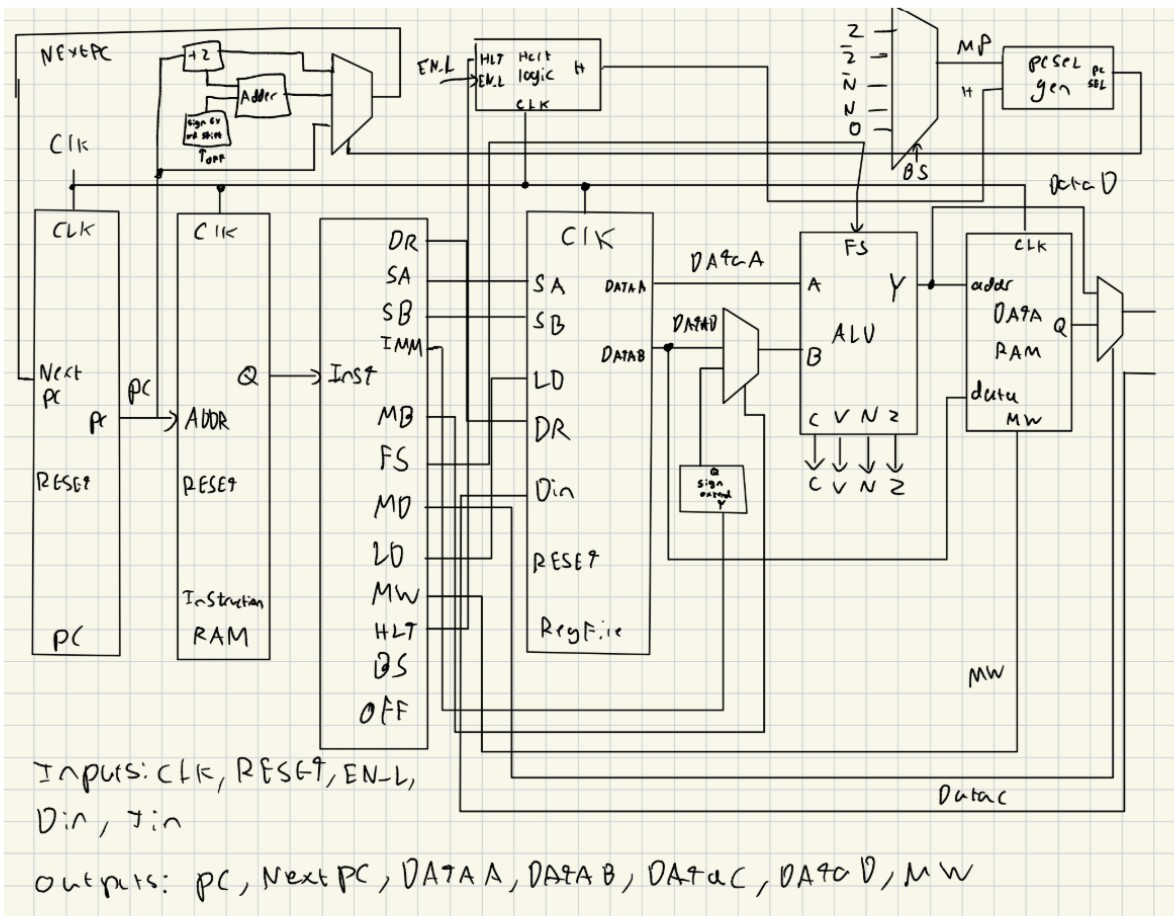 NEXTPC
+2
Adder
OFF
EN_L
HLT Halt logic H
EN_L
CLK
Z
Z̅
N̅
N
0
MP
H
PCSEL gen PC SEL
BS
Clk
Data D
CLK
Next PC
PC
RESET
PC
PC
Clk
Q
ADDR
RESET
Instruction
RAM
Inst
DR
SA
SB
IMM
MB
FS
MD
LD
MW
HLT
BS
OFF
Clk
SA
SB
LD
DR
Din
RESET
RegFile
DATAA
DATAB
DATA A
DATAD
Q
sign
extend
Y
FS
A
Y
ALU
B
C V N Z
C V N Z
CLK
addr
DATA
Q
RAM
data
MW
MW
Data C
Inputs: CLK, RESET, EN_L,
Din, Iin
outputs: PC, Next PC, DATA A, DATA B, DATA C, DATA D, MW